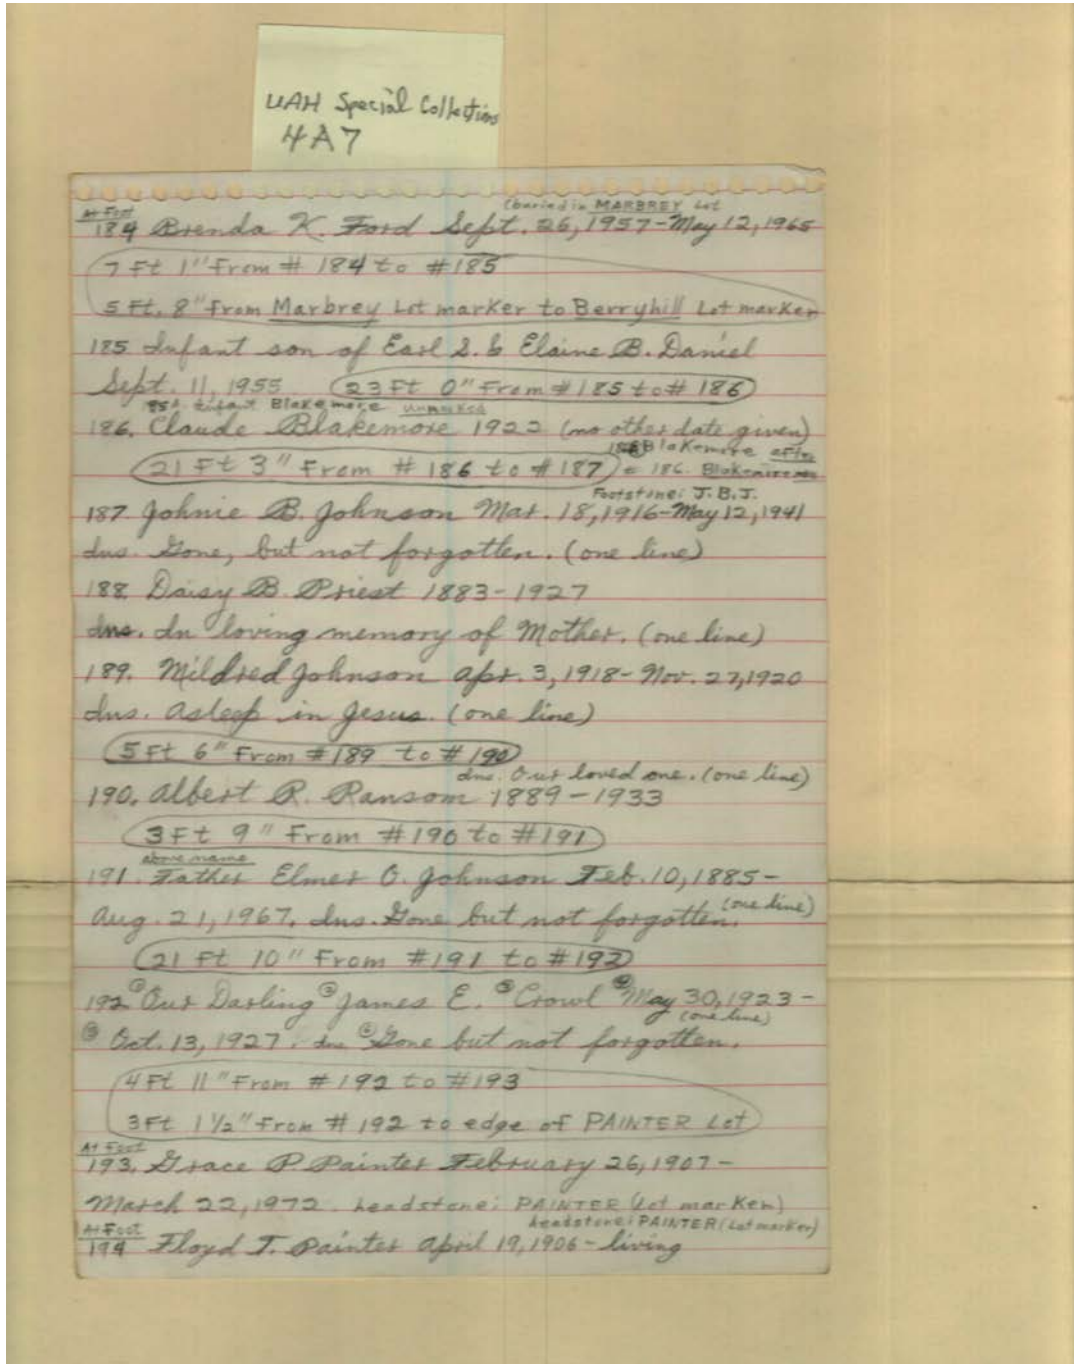 UAH Special Collections
4A7
(buried in MARBREY Lot
At Foot
184 Brenda K. Ford Sept. 26, 1957-May 12, 1965
7 Ft 1" From # 184 to #185
5 Ft. 8" from Marbrey Lot marker to Berryhill Lot marker
185 Infant son of Earl S. & Elaine B. Daniel
Sept. 11, 1955 23 Ft 0" From #185 to # 186
Infant Blakemore unmarked
186. Claude Blakemore 1922 (no other date given)
Blakemore after
21 Ft 3" From # 186 to #187 186. Blakemore
Footstone: J.B.J.
187 Johnie B. Johnson Mar. 18, 1916-May 12, 1941
ins. Gone, but not forgotten. (one line)
188. Daisy B. Priest 1883-1927
ins. In loving memory of Mother. (one line)
189. Mildred Johnson Apr. 3, 1918- Nov. 27, 1920
ins. Asleep in Jesus. (one line)
5 Ft 6" From #189 to #190
ins. Our loved one. (one line)
190. Albert R. Ransom 1889-1933
3 Ft 9" From #190 to #191
above name
191. Father Elmer O. Johnson Feb. 10, 1885-
Aug. 21, 1967. ins. Gone but not forgotten. (one line)
21 Ft 10" From #191 to #192
192 ① Our Darling ② James E. ③ Crowl ④ May 30, 1923-
(one line)
⑤ Oct. 13, 1927. ins ⑥ Gone but not forgotten.
4 Ft 11" From #192 to #193
3 Ft 1 1/2" From # 192 to edge of PAINTER Lot
At Foot
193. Grace P Painter February 26, 1907-
March 22, 1972. headstone: PAINTER (Lot marker)
headstone: PAINTER (Lot marker)
At Foot
194 Floyd T. Painter April 19, 1906-living